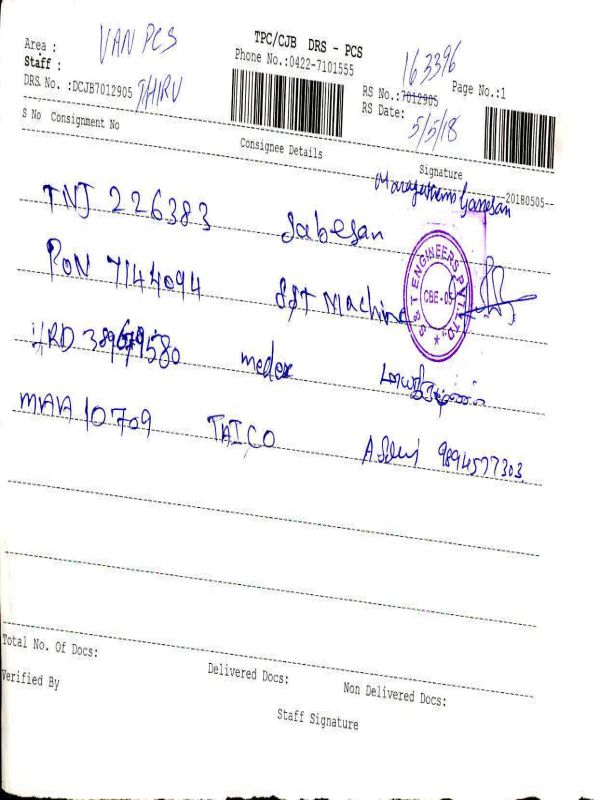 Area : VAN PCS
TPC/CJB DRS - PCS
163396
Staff : THIRU
Phone No.:0422-7101555
Page No.:1
DRS. No. :DCJB7012905
RS No.:7012905
RS Date: 5/5/18
S No Consignment No
Consignee Details
Signature
20180505
TNJ 226383 Sabesan Ganesan
PON 7144094 S&T Machine
S&T ENGINEERS PVT LTD
CBE - 09
medex
MAA 10709 TAICO 9894577303
Total No. Of Docs:
Delivered Docs:
Non Delivered Docs:
Verified By
Staff Signature